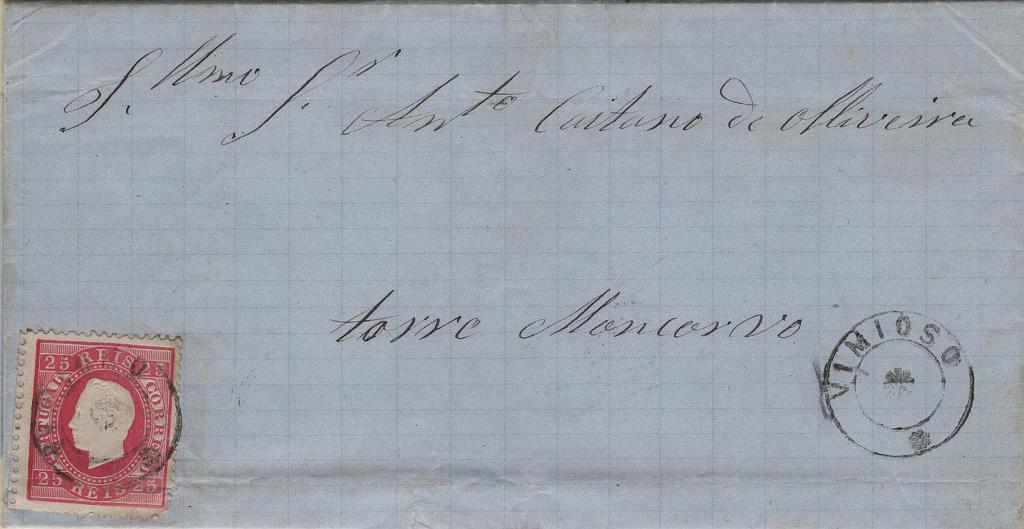 S. Illmo Sr. Anto Caitano de Olliveira
torre Moncorvo
VIMIOSO
25 REIS 25
PORTUGAL
CORREIO
25 REIS 25